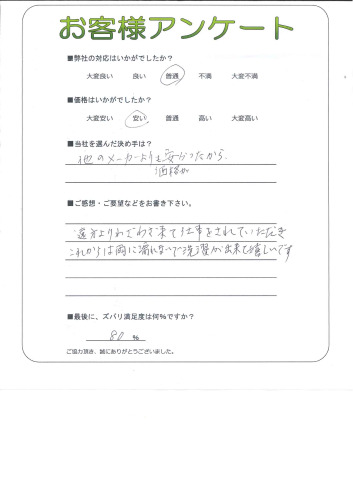 お客様アンケート
■弊社の対応はいかがでしたか?
大変良い 良い 普通 不満 大変不満
■価格はいかがでしたか?
大変安い 安い 普通 高い 大変高い
■当社を選んだ決め手は?
他のメーカーよりも安かったから。
価格が
■ご感想・ご要望などをお書き下さい。
遠方よりわざわざ来て仕事をされていただき
これからは雨に濡れないで洗濯が出来て嬉しいです
■最後に、ズバリ満足度は何%ですか?
80 %
ご協力頂き、誠にありがとうございました。